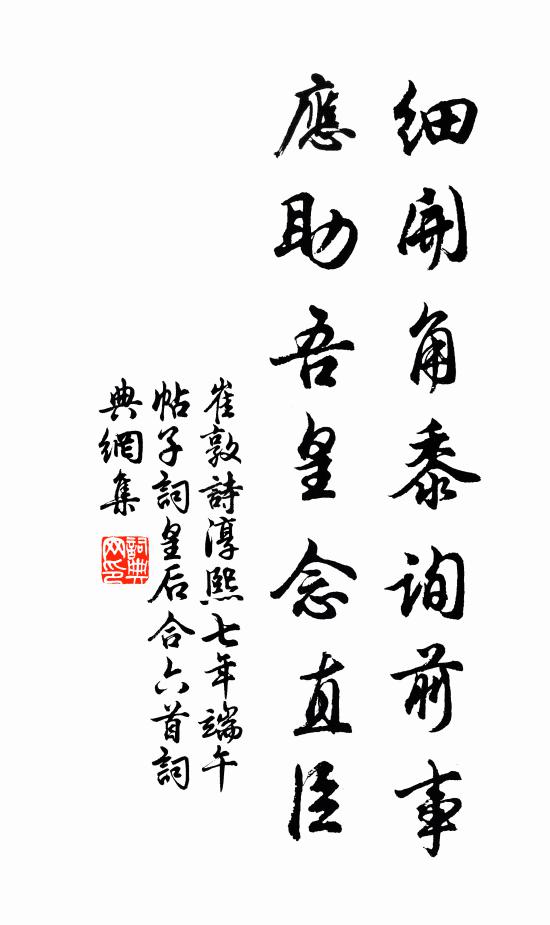 細開角黍詢前事
應助吾皇念直臣
崔敦詩淳熙七年端午
帖子詞皇后合六首詞
典網集
詞典網印